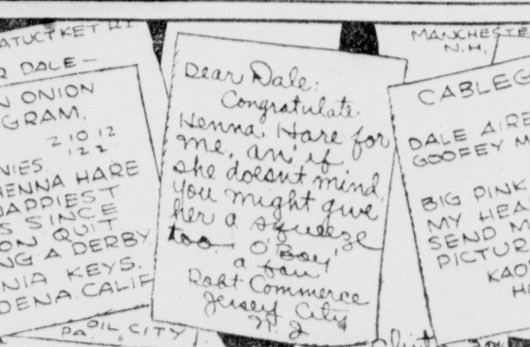 ATUCTKET R.I.
R DALE—
N ONION
GRAM.
2 10 12
122
NIES
HENNA HARE
HAPPIEST
S SINCE
ON QUIT
NG A DERBY
NIA KEYS.
DENA. CALIF
PA OIL CITY
Dear Dale:
Congratulate
Henna Hare for
me, an' if
she doesnt mind
you might give
her a squeeze
too. O'Boy!
a fan
Robt Commerce
Jersey City
N. J
MANCHESTE
N.H.
CABLEG
DALE AIRE
GOOFEY M
BIG PINK
MY HEA
SEND M
PICTUR
KAO
HO